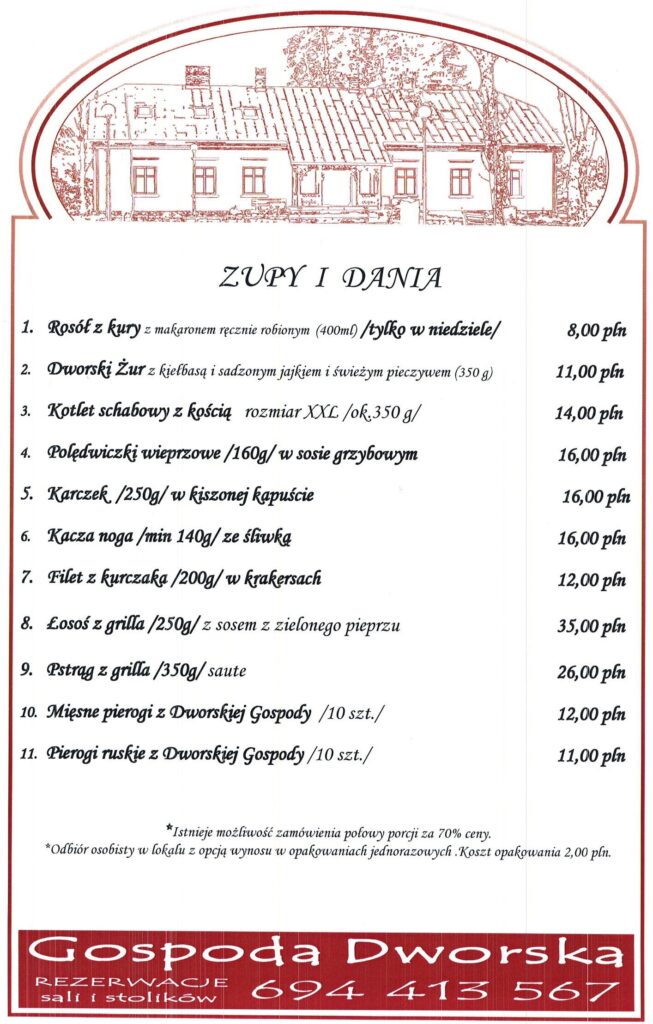 ZUPY I DANIA
1. Rosół z kury z makaronem ręcznie robionym (400ml) /tylko w niedziele/ 8,00 pln
2. Dworski Żur z kiełbasą i sadzonym jajkiem i świeżym pieczywem (350 g) 11,00 pln
3. Kotlet schabowy z kością rozmiar XXL /ok.350 g/ 14,00 pln
4. Polędwiczki wieprzowe /160g/ w sosie grzybowym 16,00 pln
5. Karczek /250g/ w kiszonej kapuście 16,00 pln
6. Kacza noga /min 140g/ ze śliwką 16,00 pln
7. Filet z kurczaka /200g/ w krakersach 12,00 pln
8. Łosoś z grilla /250g/ z sosem z zielonego pieprzu 35,00 pln
9. Pstrąg z grilla /350g/ saute 26,00 pln
10. Mięsne pierogi z Dworskiej Gospody /10 szt./ 12,00 pln
11. Pierogi ruskie z Dworskiej Gospody /10 szt./ 11,00 pln
*Istnieje możliwość zamówienia połowy porcji za 70% ceny.
*Odbiór osobisty w lokalu z opcją wynosu w opakowaniach jednorazowych .Koszt opakowania 2,00 pln.
Gospoda Dworska
REZERWACJE
sali i stolików 694 413 567